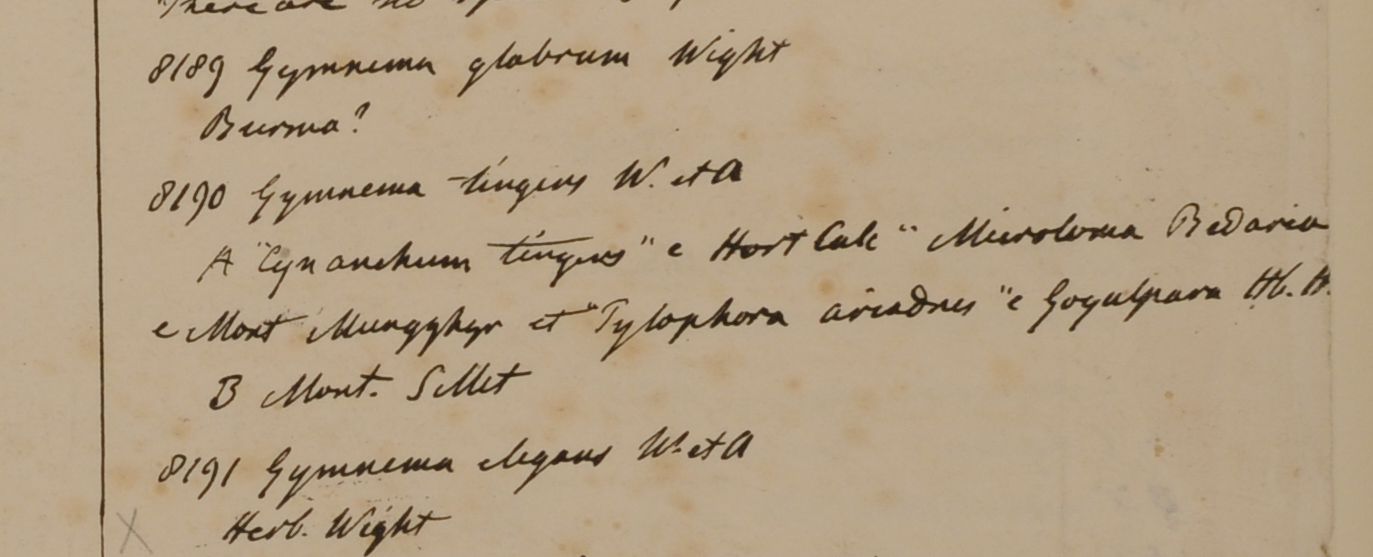 There are no
8189 Gymnema glabrum Wight
Burma?
8190 Gymnema tingens W. et A
A "Cynanchum tingens" e Hort Calc " Microloma Bedaria
e Mont Mungghyr et "Tylophora ariadnes" e Goyalpara Hb. H.
B Mont. Sillet
8191 Gymnema elegans W. et A
Herb. Wight